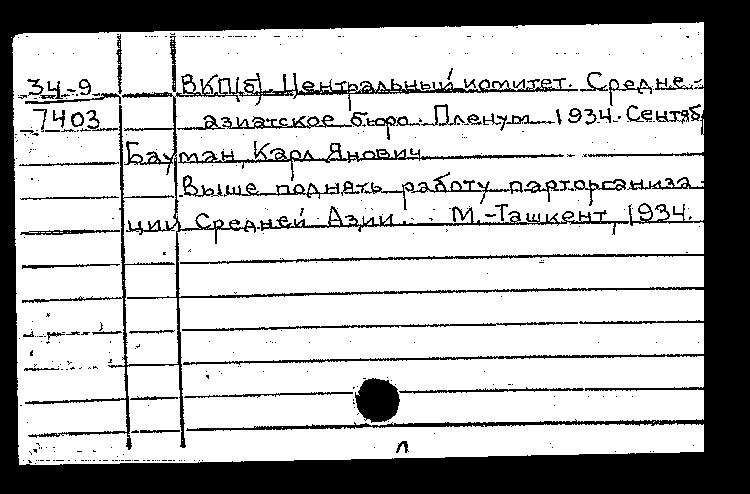 34-9 ВКП(б) Центральный комитет. Средне-
7403 азиатское бюро. Пленум. 1934. Сентяб
Бауман, Карл Янович.
Выше поднять работу парторганиза-
ции Средней Азии... М.-Ташкент, 1934.
л